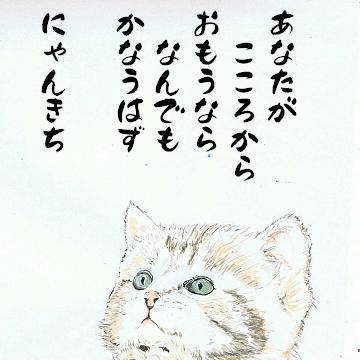 あなたが
こころから
おもうなら
なんでも
かなうはず
にゃんきち